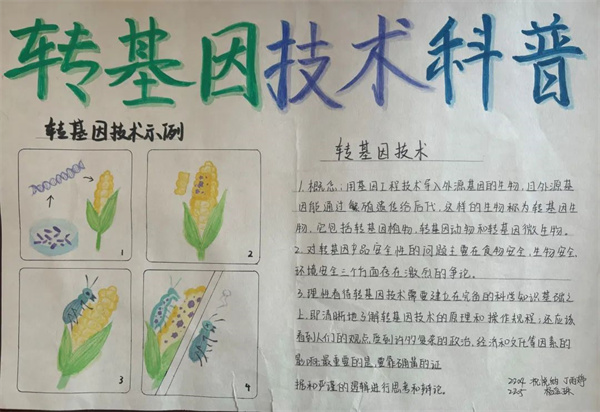 转基因技术科普
转基因技术示例
1
2
3
4
转基因技术
1.概念:用基因工程技术导入外源基因的生物,且外源基
因能通过繁殖遗传给后代,这样的生物称为转基因生
物,它包括转基因植物,转基因动物和转基因微生物。
2.对转基因产品安全性的问题主要在食物安全,生物安全
环境安全三个方面存在激烈的争论。
3.理性看待转基因技术需要建立在完备的科学知识基础之
上,即清晰地了解转基因技术的原理和操作规程;还应该
看到人们的观点受到许多复杂的政治,经济和文化等因素的
影响;最重要的是,要靠确凿的证
据和严谨的逻辑进行思考和辩论。
2204
2205